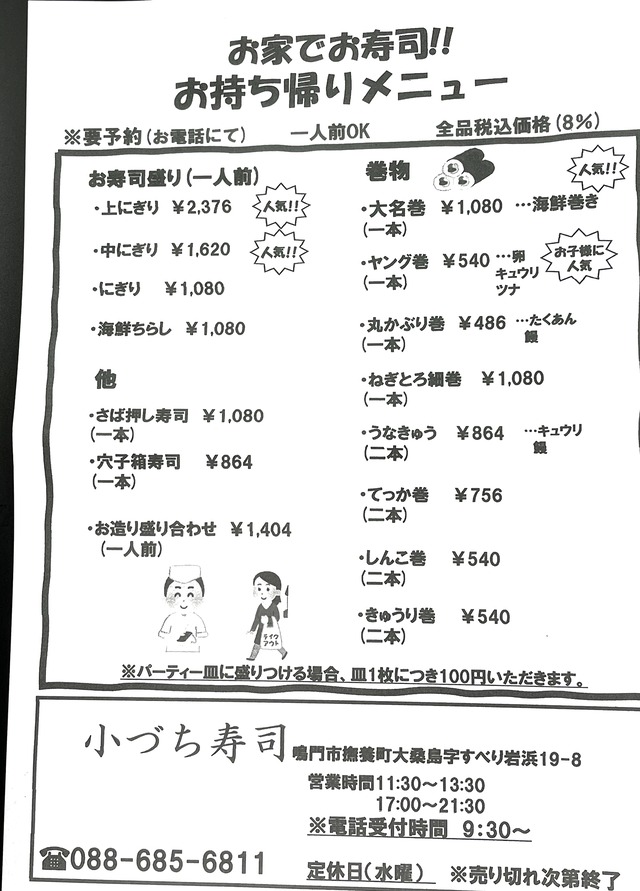 お家でお寿司!!
お持ち帰りメニュー
※要予約(お電話にて) 一人前OK 全品税込価格(8%)
お寿司盛り(一人前)
・上にぎり ¥2,376 人気!!
・中にぎり ¥1,620 人気!!
・にぎり ¥1,080
・海鮮ちらし ¥1,080
他
・さば押し寿司 ¥1,080
(一本)
・穴子箱寿司 ¥864
(一本)
・お造り盛り合わせ ¥1,404
(一人前)
テイク
アウト
巻物
人気!!
・大名巻 ¥1,080 …海鮮巻き
(一本)
・ヤング巻 ¥540 …卵
(一本)
キュウリ
ツナ
お子様に
人気
・丸かぶり巻 ¥486 …たくあん
(一本)
鰻
・ねぎとろ細巻 ¥1,080
(一本)
・うなきゅう ¥864 …キュウリ
(二本)
鰻
・てっか巻 ¥756
(二本)
・しんこ巻 ¥540
(二本)
・きゅうり巻 ¥540
(二本)
※パーティー皿に盛りつける場合、皿1枚につき100円いただきます。
小づち寿司 鳴門市撫養町大桑島字すべり岩浜19-8
営業時間11:30〜13:30
17:00〜21:30
※電話受付時間 9:30〜
☎088-685-6811
定休日(水曜) ※売り切れ次第終了